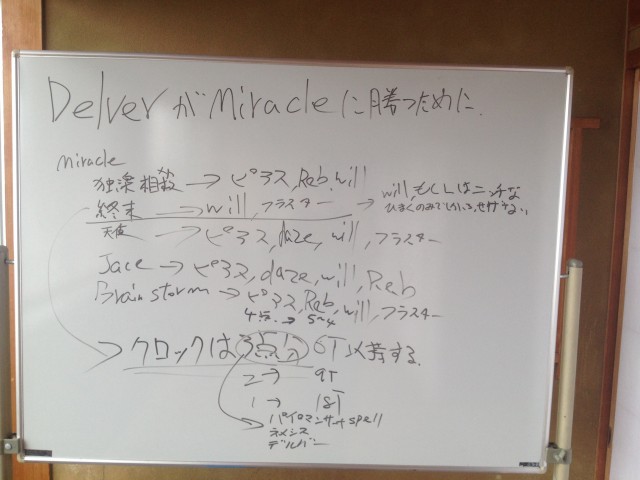 DelverがMiracleに勝つために.
miracle
独楽相殺→ピアス,Reb,will
終末→will,フラスター→will,もしくはニッチな
天使→ピアス,daze,will,フラスター
Jace→ピアス,daze,will,Reb
Brainstorm→ピアス,Reb,will,フラスター
→5~4
→クロックは3点分 6T必要する.
2→ 9T
1→ 18T
パイロマンサーspell
ネメシス
デルバー